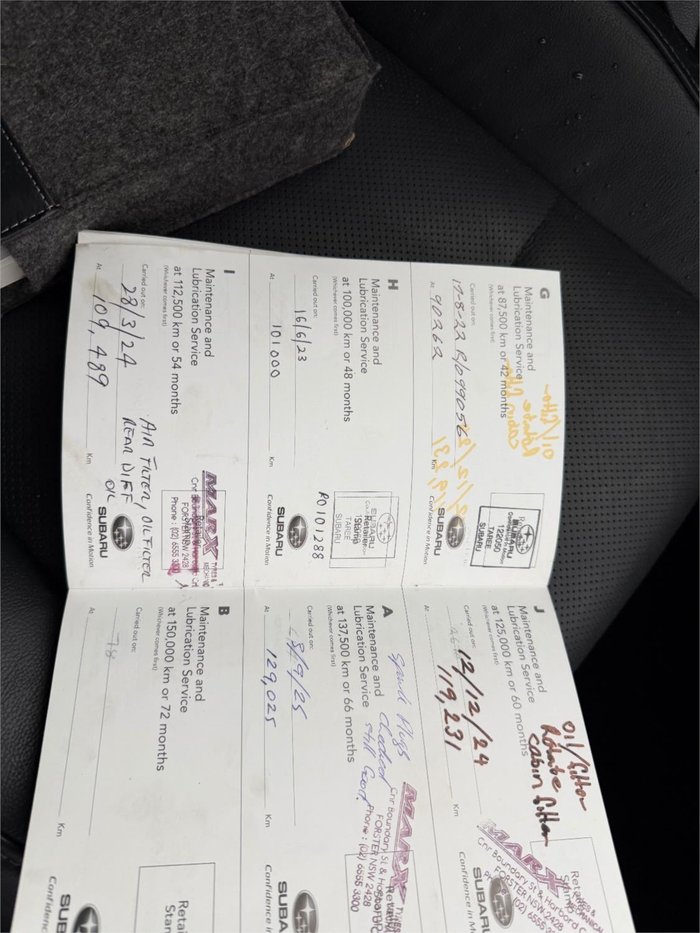 G
Maintenance and
Lubrication Service
at 87,500 km or 42 months
(Whichever comes first)
Carried out on:
17-8-22 R/O99056
At 90262 Km
SUBARU
TAREE
122050
SUBARU
Confidence in Motion
H
Maintenance and
Lubrication Service
at 100,000 km or 48 months
(Whichever comes first)
Carried out on:
16/6/23
At 101000 Km
RO101288
SUBARU
Retailer
Stamp
TAREE
SUBARU
SUBARU
Confidence in Motion
I
Maintenance and
Lubrication Service
at 112,500 km or 54 months
(Whichever comes first)
Carried out on:
28/3/24
At 109,489 Km
AIR FILTER, OIL FILTER
REAR DIFF OIL
MARX
FORSTER NSW 2428
Phone: (02) 6555 3300
SUBARU
Confidence in Motion
J
Maintenance and
Lubrication Service
at 125,000 km or 60 months
(Whichever comes first)
Carried out on:
12/12/24
At 119,231 Km
Oil/filter
Rotate
Cabin filter
MARX
Cnr Boundary St & Harbord C
FORSTER NSW 2428
(02) 6555 3300
SUBARU
Confidence in M
A
Maintenance and
Lubrication Service
at 137,500 km or 66 months
(Whichever comes first)
Carried out on:
8/9/25
At 129,025 Km
Spark Plugs
Checked
still Good
MARX TYRES
Cnr Boundary St & Harbord
FORSTER NSW 2428
Phone: (02) 6555 3300
SUBARU
Confidence in
B
Maintenance and
Lubrication Service
at 150,000 km or 72 months
(Whichever comes first)
Carried out on:
At Km
Retai
Stan
SUB
Confidence